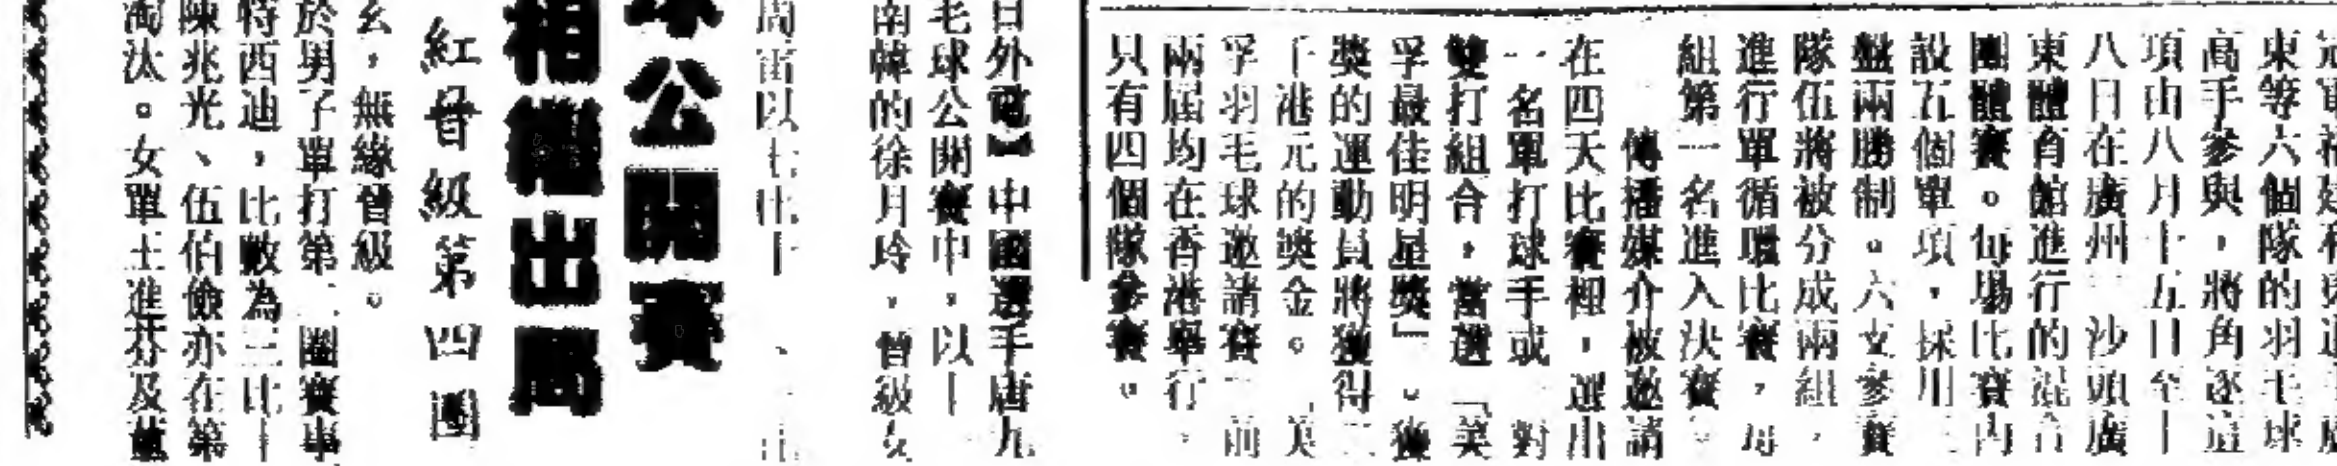 東等六個隊的羽毛球
高手參與，將角逐這
項由八月十五日至十
八日在廣州 沙頭廣
東體育館進行的混合
團體賽。每場比賽內
設五個單項，採用三
盤兩勝制。六支參賽
隊伍將被分成兩組，
進行單循環比賽，每
組第一名進入決賽。
傳播媒介被邀請
在四天比賽裡，選出
一名單打球手或一對
雙打組合，當選「美
孚最佳明星獎」。獲
獎的運動員將獲得二
千港元的獎金。「美
孚羽毛球邀請賽」前
兩屆均在香港舉行，
只有四個隊參賽。
日外電】中國選手唐九
毛球公開賽中，以十
南韓的徐月玲，晉級女
周雷以七比十
球公開賽
相繼出局
紅晉級第四圈
玄，無緣晉級。
於男子單打第二圈賽事
特西迪，比數為三比十
陳兆光、伍伯儉亦在第
淘汰。女單王進芬及